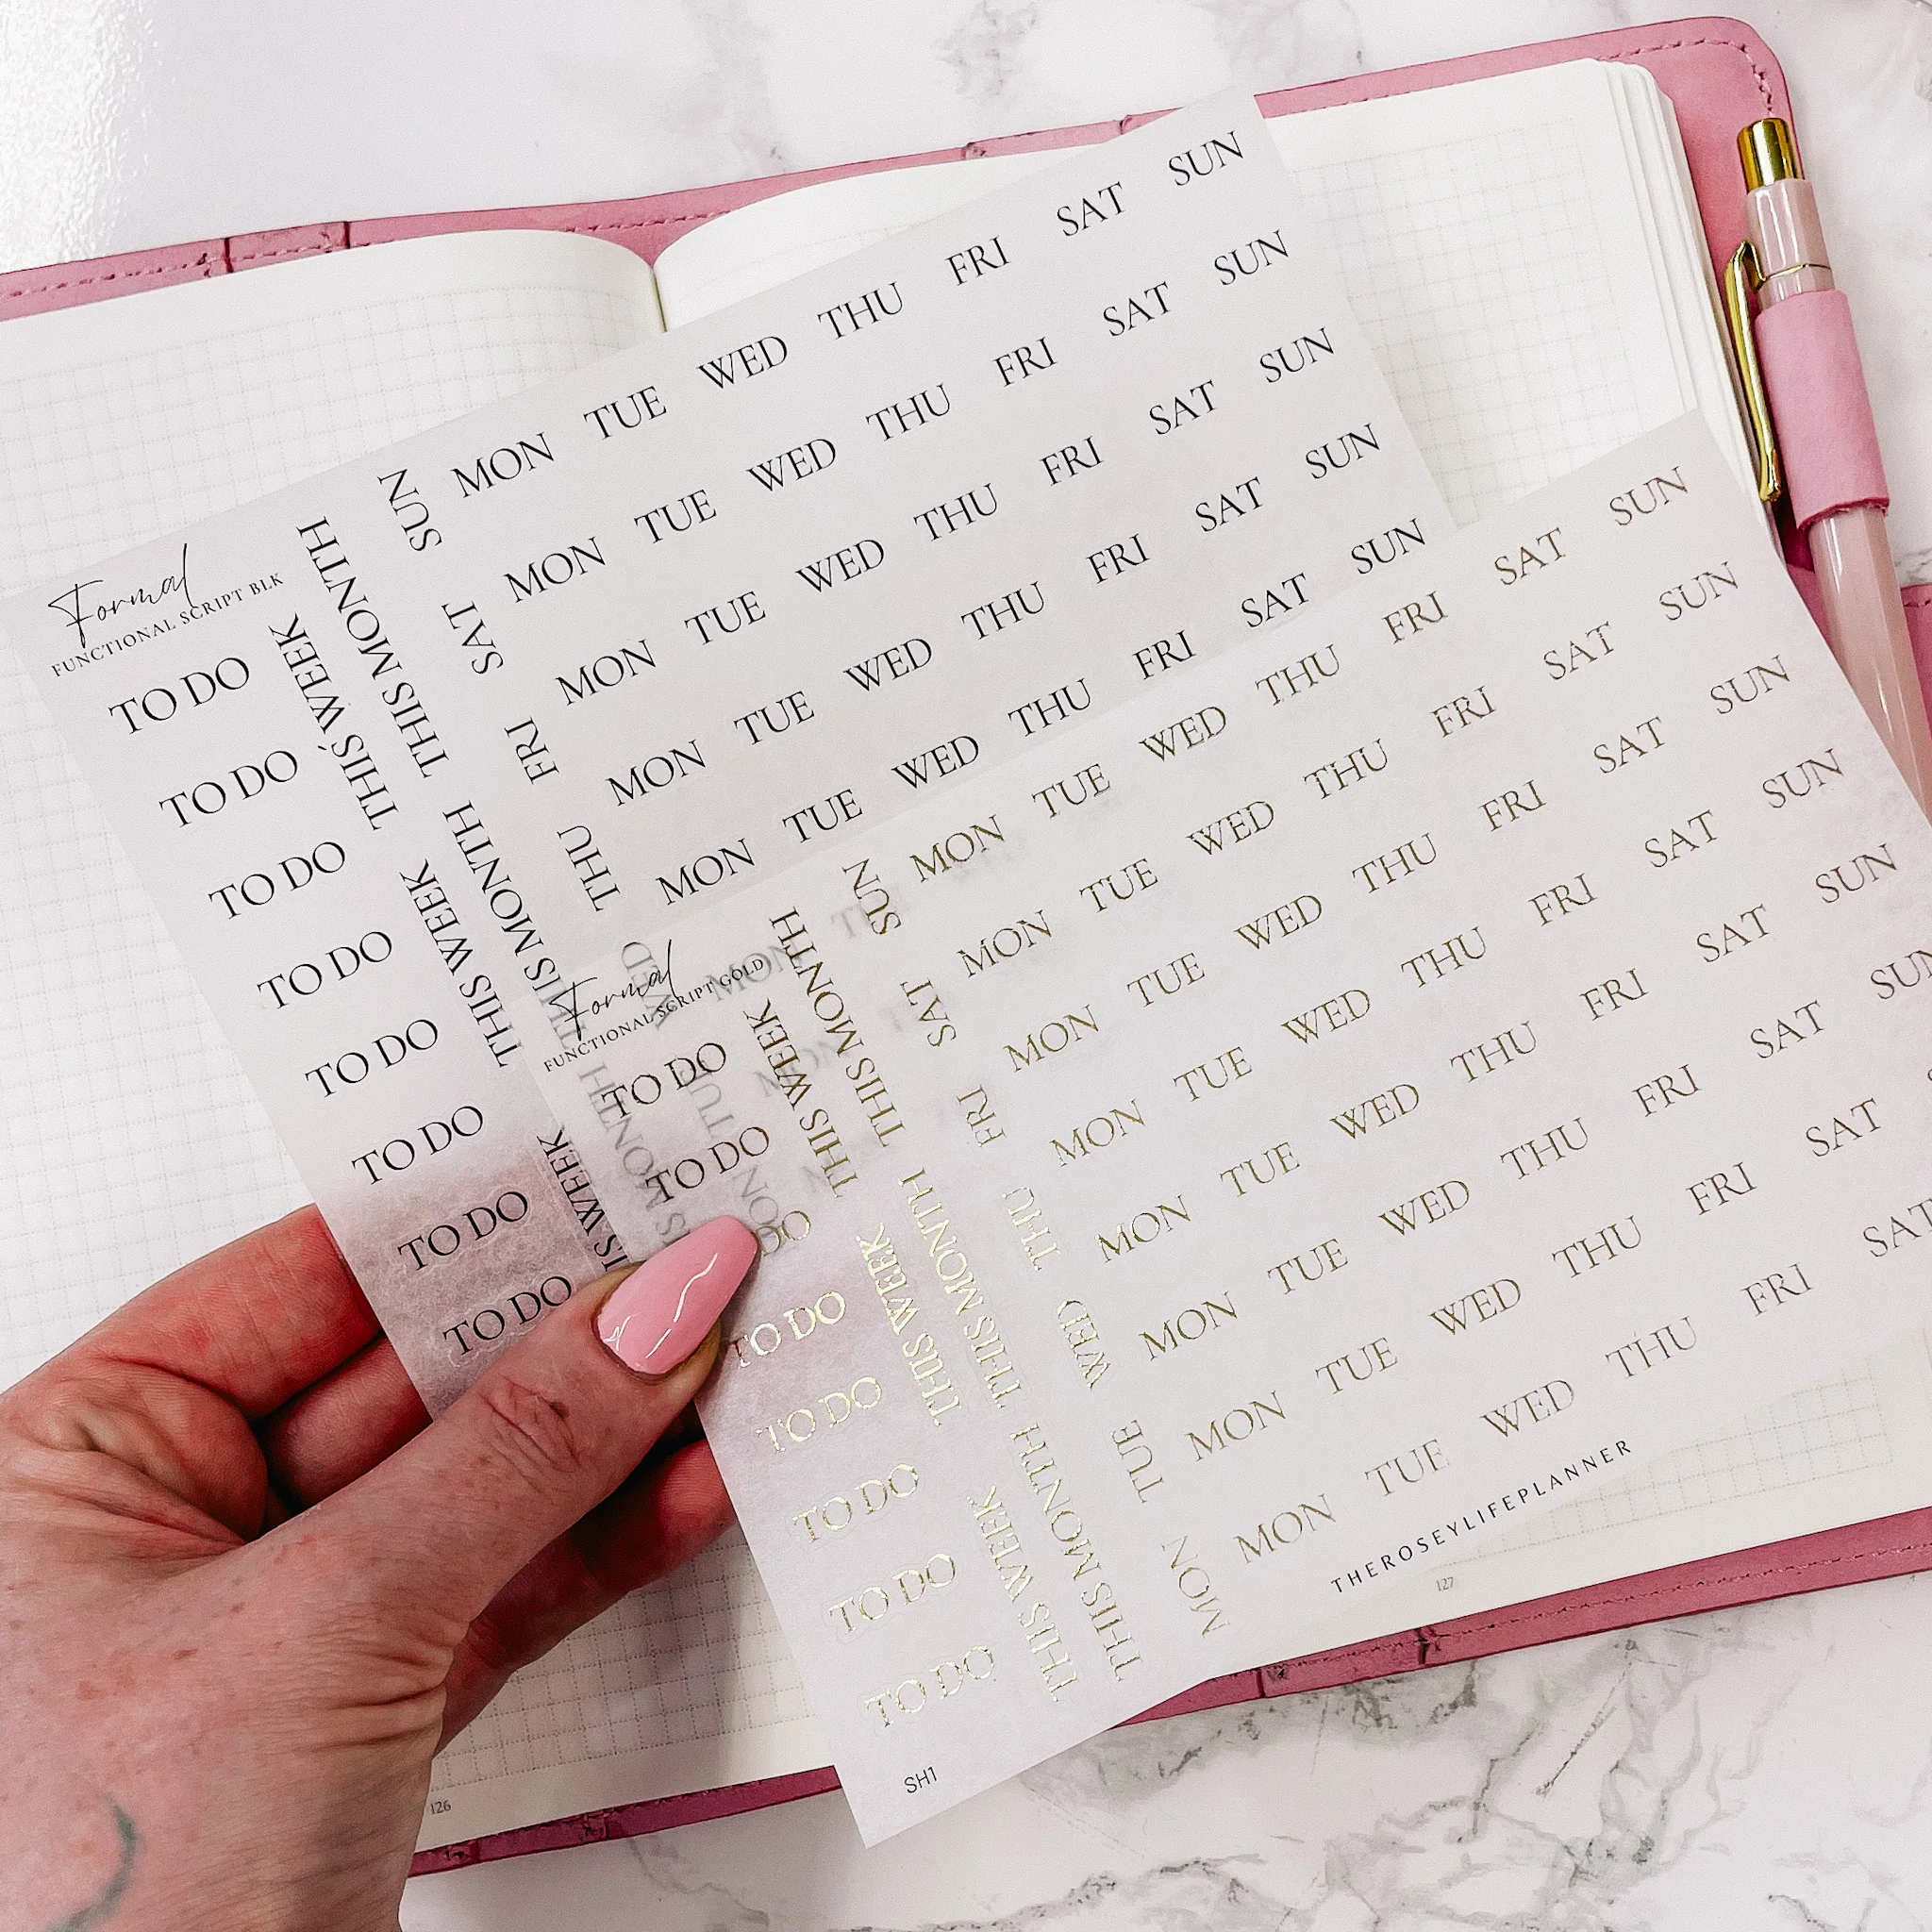 Formal
FUNCTIONAL SCRIPT BLK
TO DO
TO DO
TO DO
TO DO
TO DO
TO DO
TO DO
TO DO
THIS WEEK
THIS WEEK
IS WEEK
THIS MONTH
THIS MONTH
THIS MONTH
SUN
SAT
FRI
THU
WED
MON TUE WED THU FRI SAT SUN
MON TUE WED THU FRI SAT SUN
MON TUE WED THU FRI SAT SUN
MON TUE WED THU FRI SAT SUN
MON TUE WED THU FRI SAT SUN
Formal
FUNCTIONAL SCRIPT GOLD
TO DO
TO DO
DO
TO DO
TO DO
TO DO
TO DO
TO DO
THIS WEEK
THIS WEEK
THIS WEEK
THIS MONTH
THIS MONTH
THIS MONTH
SUN
SAT
FRI
THU
WED
TUE
MON
MON TUE WED THU FRI SAT SUN
MON TUE WED THU FRI SAT SUN
MON TUE WED THU FRI SAT SUN
MON TUE WED THU FRI SAT SUN
MON TUE WED THU FRI SAT SUN
MON TUE WED THU FRI SAT SUN
MON TUE WED THU FRI SAT
MON TUE WED THU FRI SAT
THEROSEYLIFEPLANNER
SH1
126
127